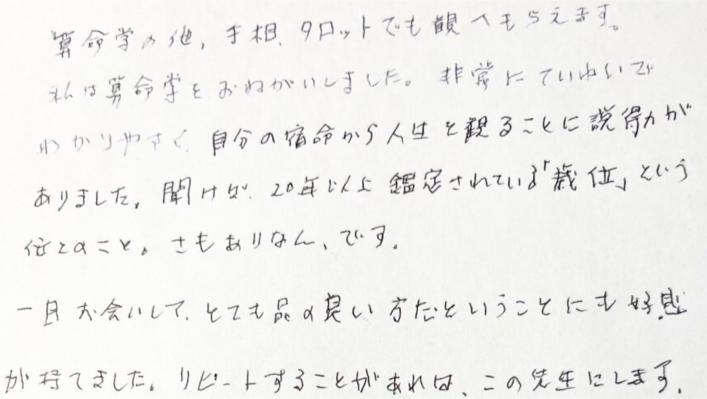 算命学の他、手相、タロットでも観てもらえます。
私は算命学をおねがいしました。非常にていねいで
わかりやすく、自分の宿命から人生を観ることに説得力が
ありました。聞けば、20年以上鑑定されている「歳位」という
位とのこと。さもありなん、です。
一目お会いして、とても品の良い方だということにも好感
が持てました。リピートすることがあれば、この先生にします。